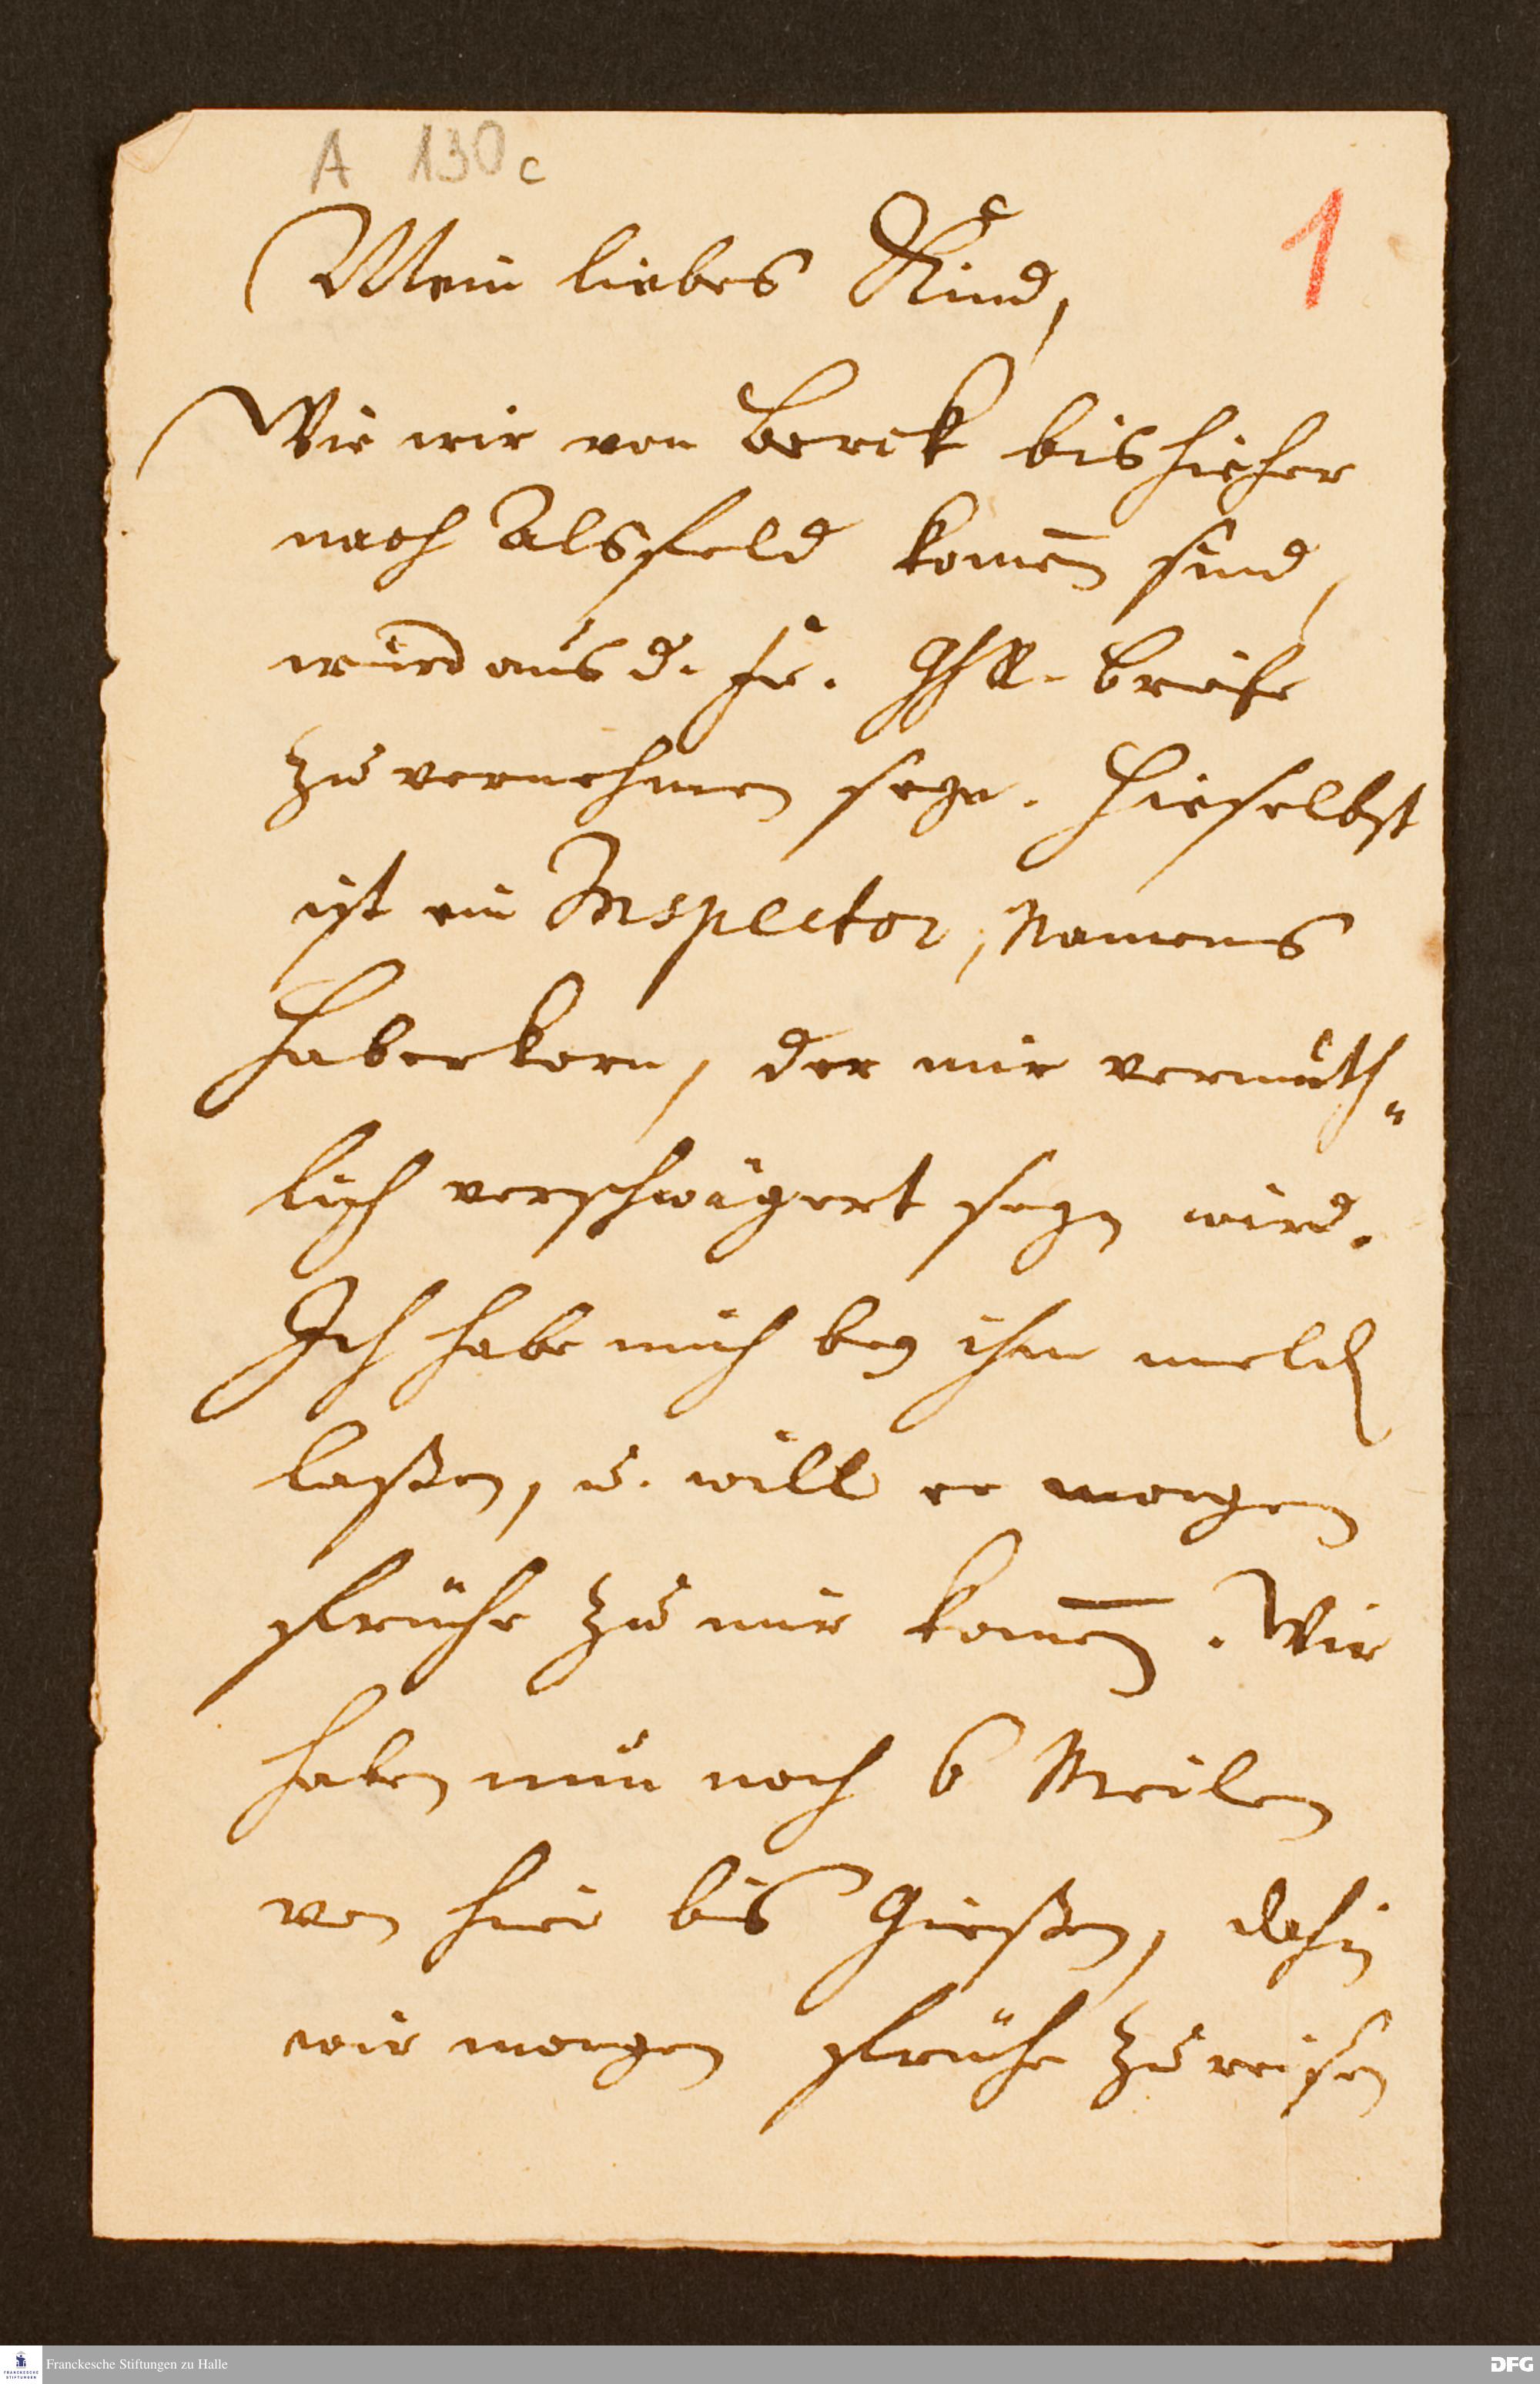 A 130c
1
Mein liebes Kind,
Wie wir von Berck bishieher
nach Alsfeld komēn sind,
wird aus d. Fr. Brieffe
zu vernehmen seyn. Hieselbst
ist ein Inspector, Namens
Haberkorn, der mir vermuth„
lich verschwägert seyn wird.
Ich habe mich bey ihm melden
laßen, u. will er morgen
frühe zu mir komēn. Wir
haben nun noch 6 Meilen
von hier bis Gießen, dahin
wir morgen frühe zu reisen
FRANCKESCHE STIFTUNGEN
Franckesche Stiftungen zu Halle
DFG